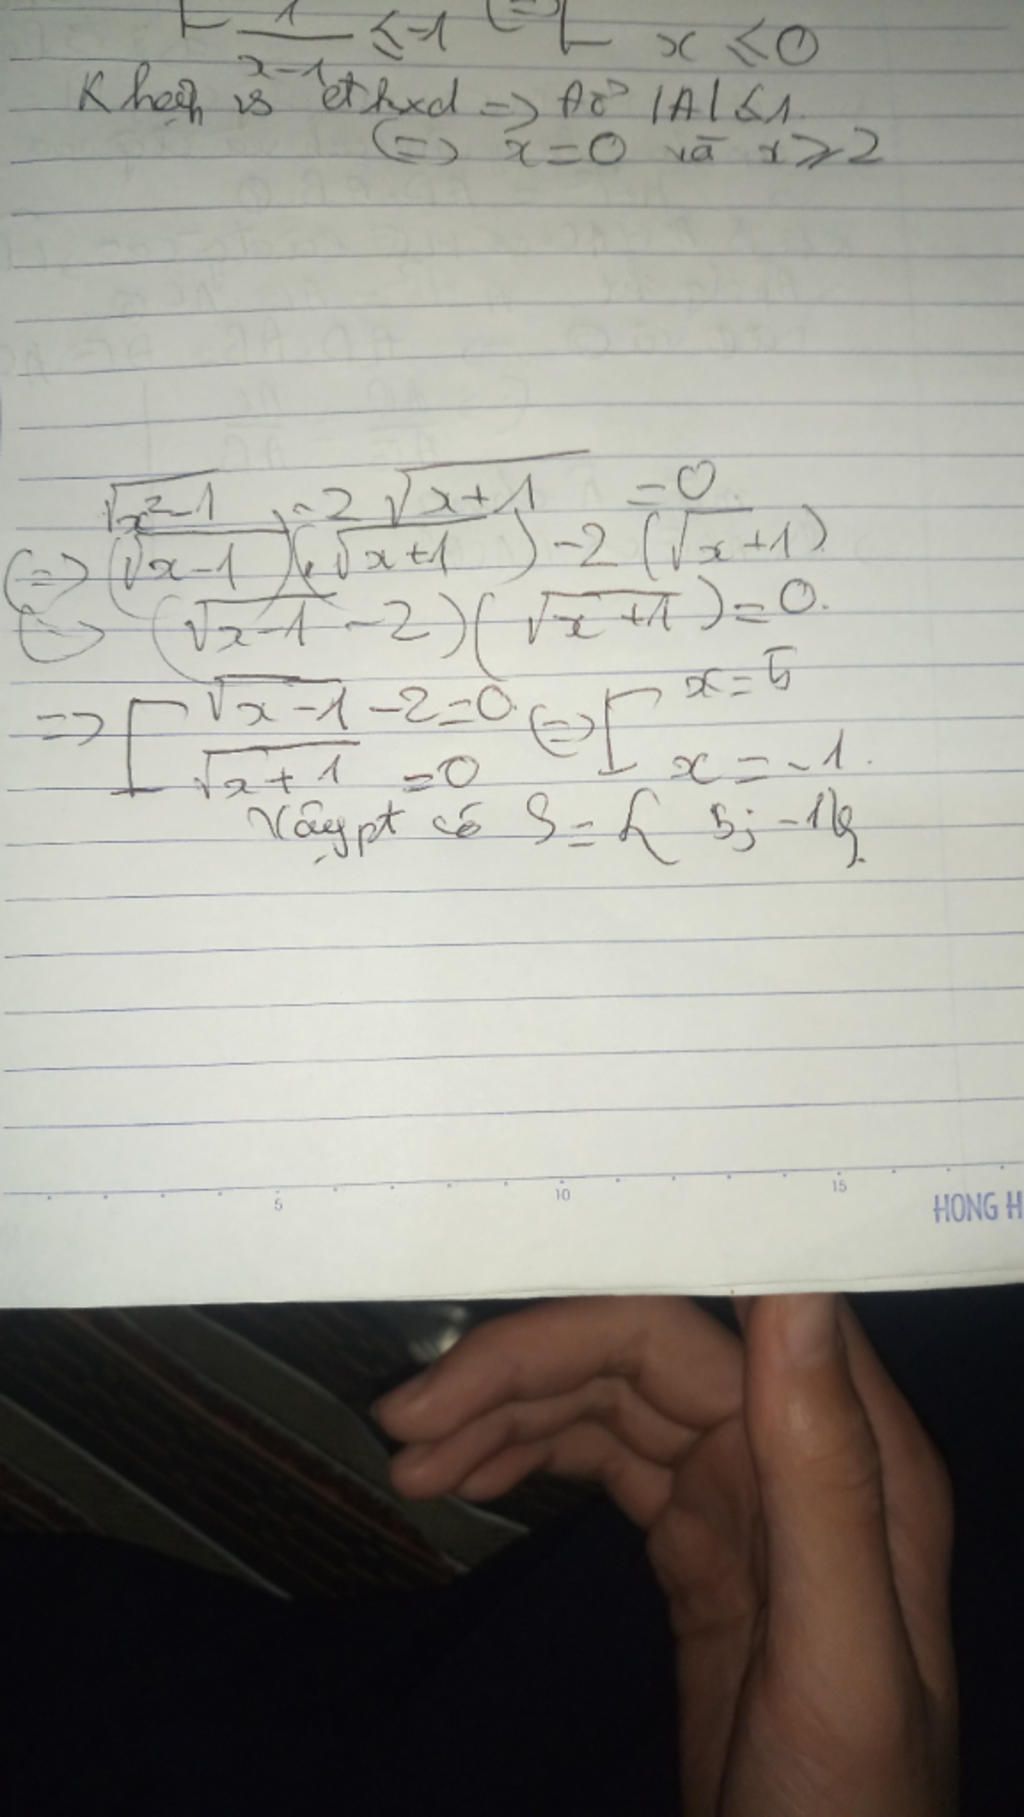 1/(x-1) ≤ -1 (=) [ x ≤ 0
Khoản vs đkxđ => Để |A| ≤ 1
(=) x = 0 và x ≥ 2
√(x²-1) - 2√(x+1) = 0
(=) (√(x-1))(√(x+1)) - 2(√(x+1))
(=) (√(x-1) - 2)(√(x+1)) = 0.
=> [ √(x-1) - 2 = 0 (=) [ x = 5
√(x+1) = 0 x = -1.
Vậy pt có S = { 5; -1}
5 10 15
HONG H